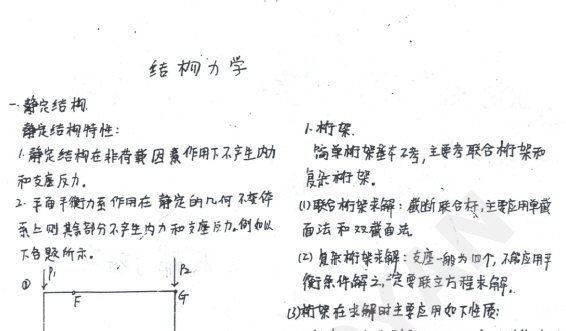 结构力学
一.静定结构.
静定结构特性:
1.静定结构在非荷载因素作用下不产生内力
和支座反力。
2.平面平衡力系作用在静定的几何不变体
系上则其余部分不产生内力和支座反力。例如以
下各题所示。
P1
P2
①
F
G
1.桁架.
简单桁架基本不考,主要考联合桁架和
复杂桁架。
(1)联合桁架求解:截断联合杆,主要应用单截
面法和双截面法.
(2)复杂桁架求解:支座一般为四个,不能应用平
衡条件解之,一定要联立方程求解。
(3)桁架在求解时主要应用如下性质: